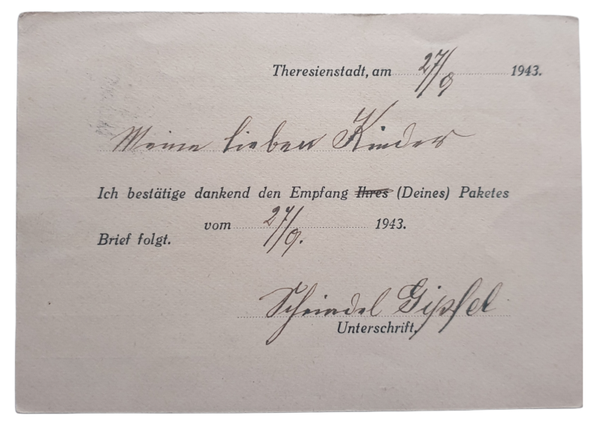 Theresienstadt, am 27/9 1943.
Meine lieben Kinder
Ich bestätige dankend den Empfang Ihres (Deines) Paketes
vom 27/9. 1943.
Brief folgt.
Scheindel Gipfel
Unterschrift.